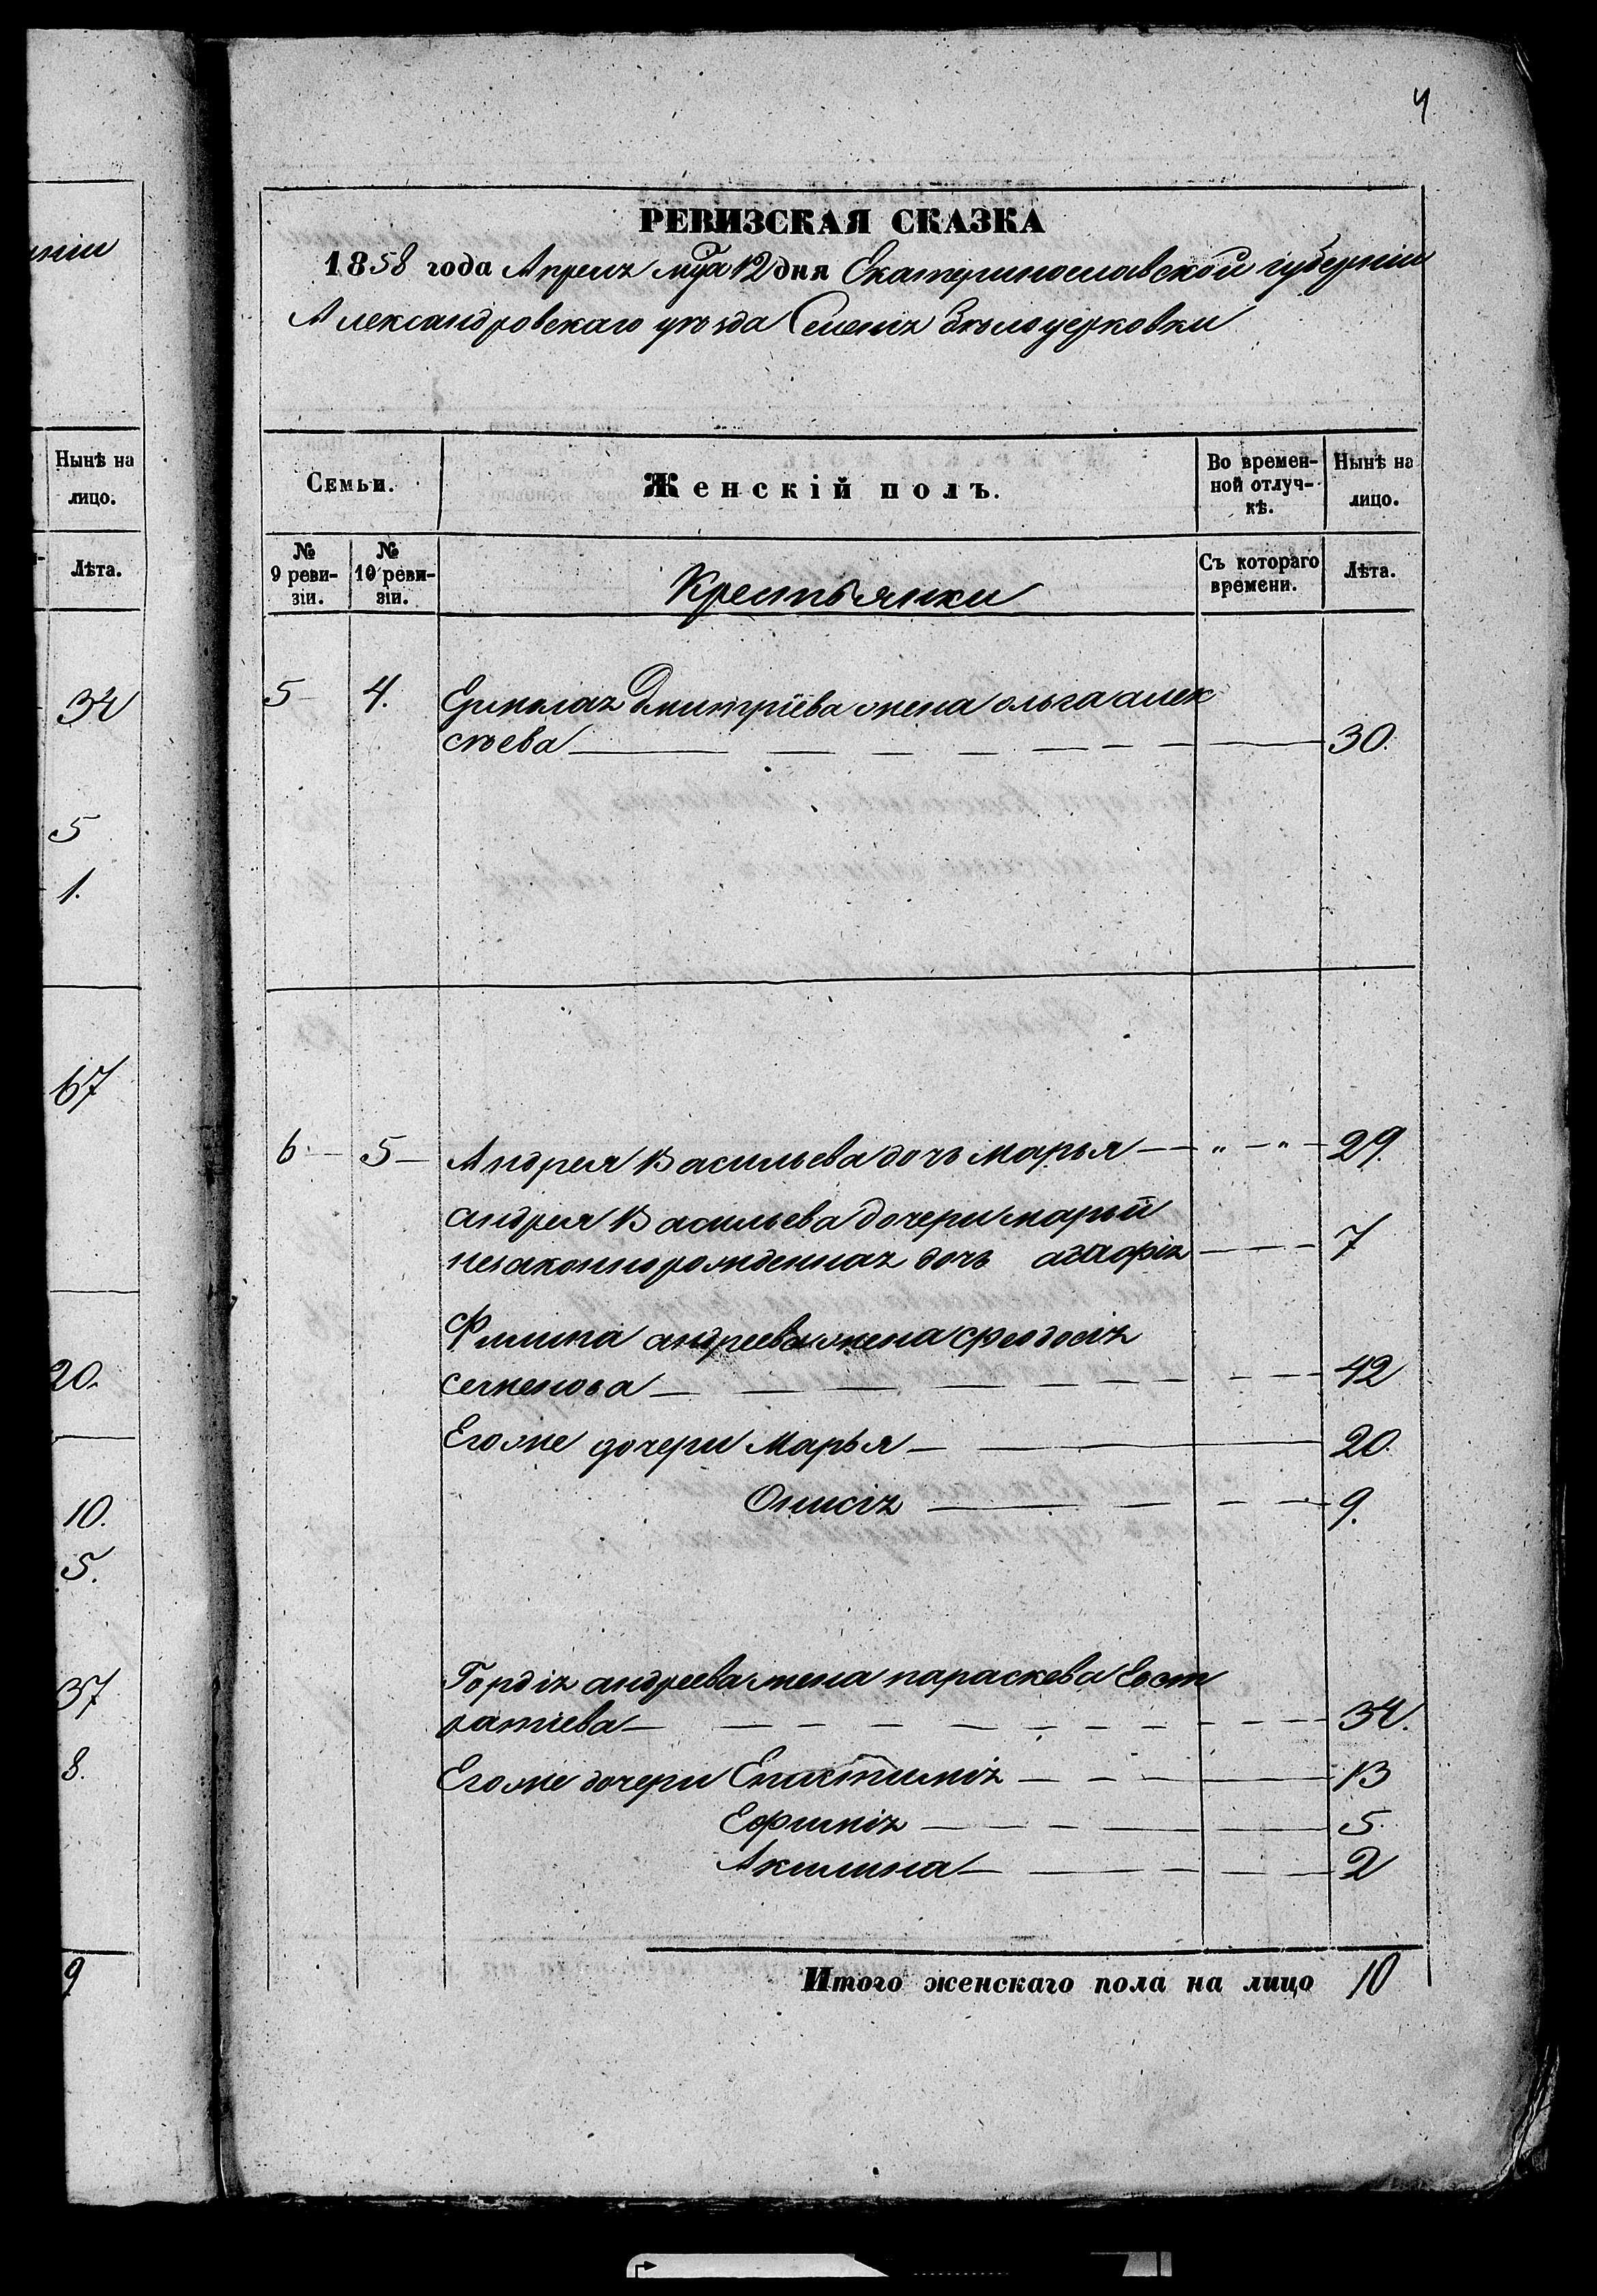 ніи
Нынѣ на
лицо.
Лѣта.
34
5
1.
67
20.
10.
5.
37
8.
9
4
РЕВИЗСКАЯ СКАЗКА
1858 года Апреля мца 12 дня Екатеринославской губерніи
Александровскаго уѣзда Селенія Бѣлоцерковки
Семьи.
Женскій полъ.
Во времен-
ной отлуч-
кѣ.
Нынѣ на
лицо.
№
9 реви-
зіи.
№
10 реви-
зіи.
Крестьянки
Съ котораго
времени.
Лѣта.
5 4. Ермолая Дмитріева жена ольга алек
сѣева 30.
6 5 Андрея Васильева дочь марья „ „ 29.
андрея Васильева дочери марьи
незаконнорожденная дочь агафія 7
Филипа андреева жена феодосія
семенова 42
Егоже дочери Марья 20.
Онисія 9.
Гордія андреева жена параскева Евст
ратіева 34.
Егоже дочери 13
Ефимія 5.
Акилина 2
Итого женскаго пола на лицо 10